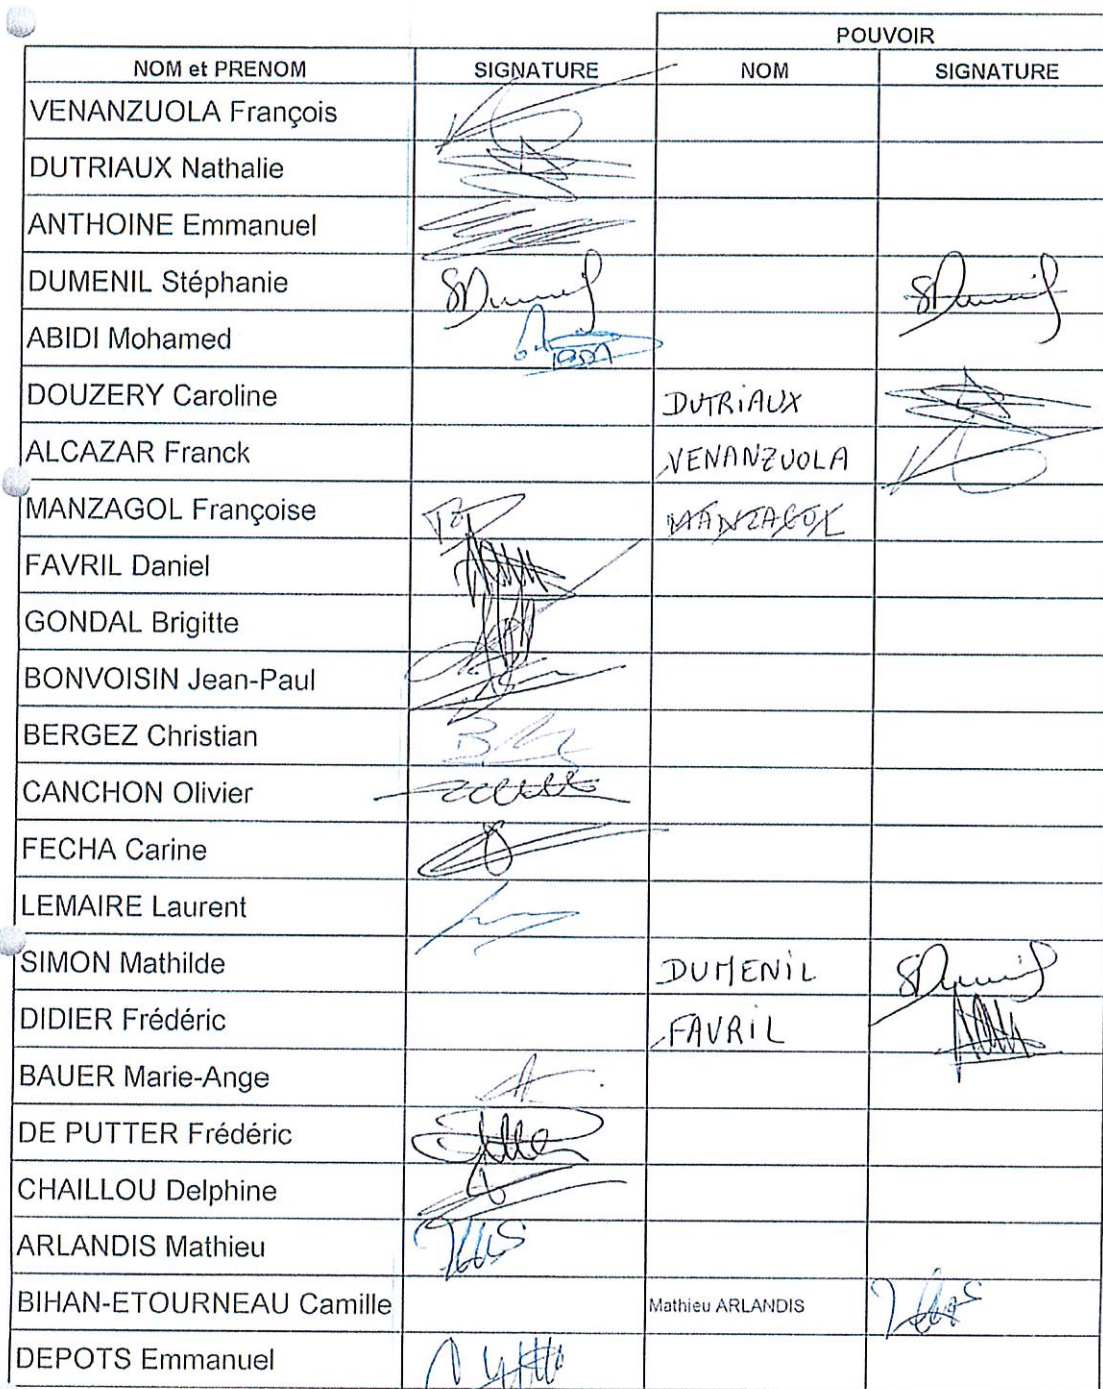 POUVOIR
NOM et PRENOM SIGNATURE NOM SIGNATURE
VENANZUOLA François
DUTRIAUX Nathalie
ANTHOINE Emmanuel
DUMENIL Stéphanie SDumenil SDumenil
ABIDI Mohamed
DOUZERY Caroline DUTRiAUX
ALCAZAR Franck VENANZUOLA
MANZAGOL Françoise MANZAGOL
FAVRIL Daniel
GONDAL Brigitte
BONVOISIN Jean-Paul
BERGEZ Christian
CANCHON Olivier
FECHA Carine
LEMAIRE Laurent
SIMON Mathilde DUMENiL SDumenil
DIDIER Frédéric FAVRiL
BAUER Marie-Ange
DE PUTTER Frédéric
CHAILLOU Delphine
ARLANDIS Mathieu
BIHAN-ETOURNEAU Camille Mathieu ARLANDIS
DEPOTS Emmanuel